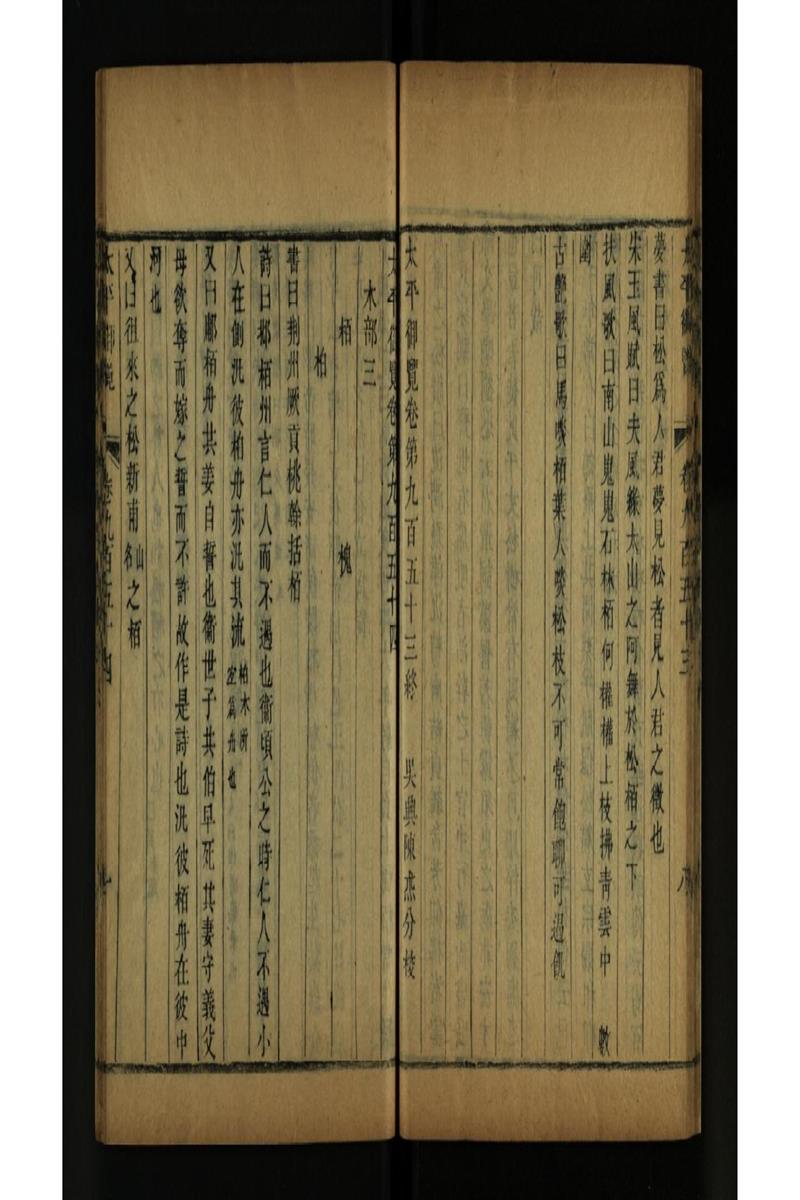 太平御覽 卷九百五十三 八
夢書曰松爲人君夢見松者見人君之徵也
宋玉風賦曰夫風緣太山之阿舞於松栢之下
扶風歌曰南山嵬嵬石林栢何權權上枝拂青雲中 數
圍
古艷歌曰馬啖栢葉人啖松枝不可常飽聊可過飢
太平御覽卷第九百五十三終 吳興陳杰分校
太平御覽卷第九百五十四
木部三
栢 槐
柏
書曰荆州厥貢桃榦括栢
詩曰邶栢州言仁人而不遇也衞頃公之時仁人不遇小
人在側汎彼柏舟亦汎其流 柏木所
宐爲舟也
又曰鄘栢舟共姜自誓也衞世子共伯早死其妻守義父
母欲奪而嫁之誓而不許故作是詩也汎彼栢舟在彼中
河也
又曰徂來之松新甫 山
名 之栢
太平御覽 卷九百五十四 七